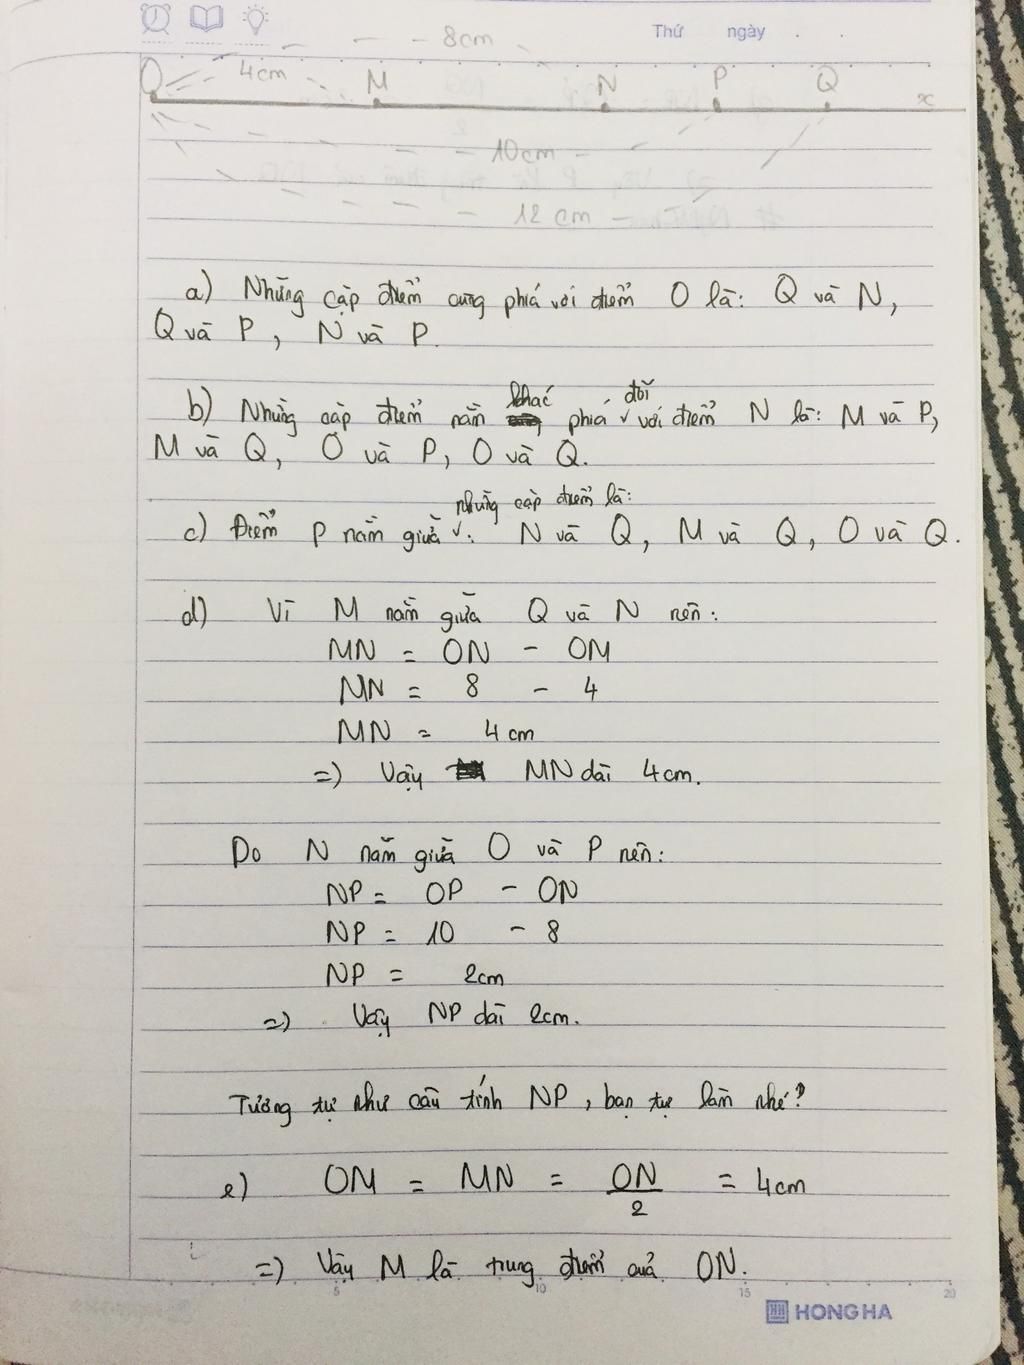 Thứ ngày . .
8cm
4cm
O M N P Q x
10cm
12cm
a) Những cặp điểm cùng phía với điểm O là: Q và N,
Q và P, N và P.
b) Những cặp điểm nằm khác phía đối với điểm N là: M và P,
M và Q, O và P, O và Q.
c) Điểm P nằm giữa những cặp điểm là: N và Q, M và Q, O và Q.
d) Vì M nằm giữa Q và N nên:
MN = ON - OM
MN = 8 - 4
MN = 4cm
=) Vậy MN dài 4cm.
Do N nằm giữa O và P nên:
NP = OP - ON
NP = 10 - 8
NP = 2cm
=) Vậy NP dài 2cm.
Tương tự như câu tính NP, bạn tự làm nhé?
e) OM = MN = ON/2 = 4cm
=) Vậy M là trung điểm quả ON.
5 10 15 20
HH HONG HA